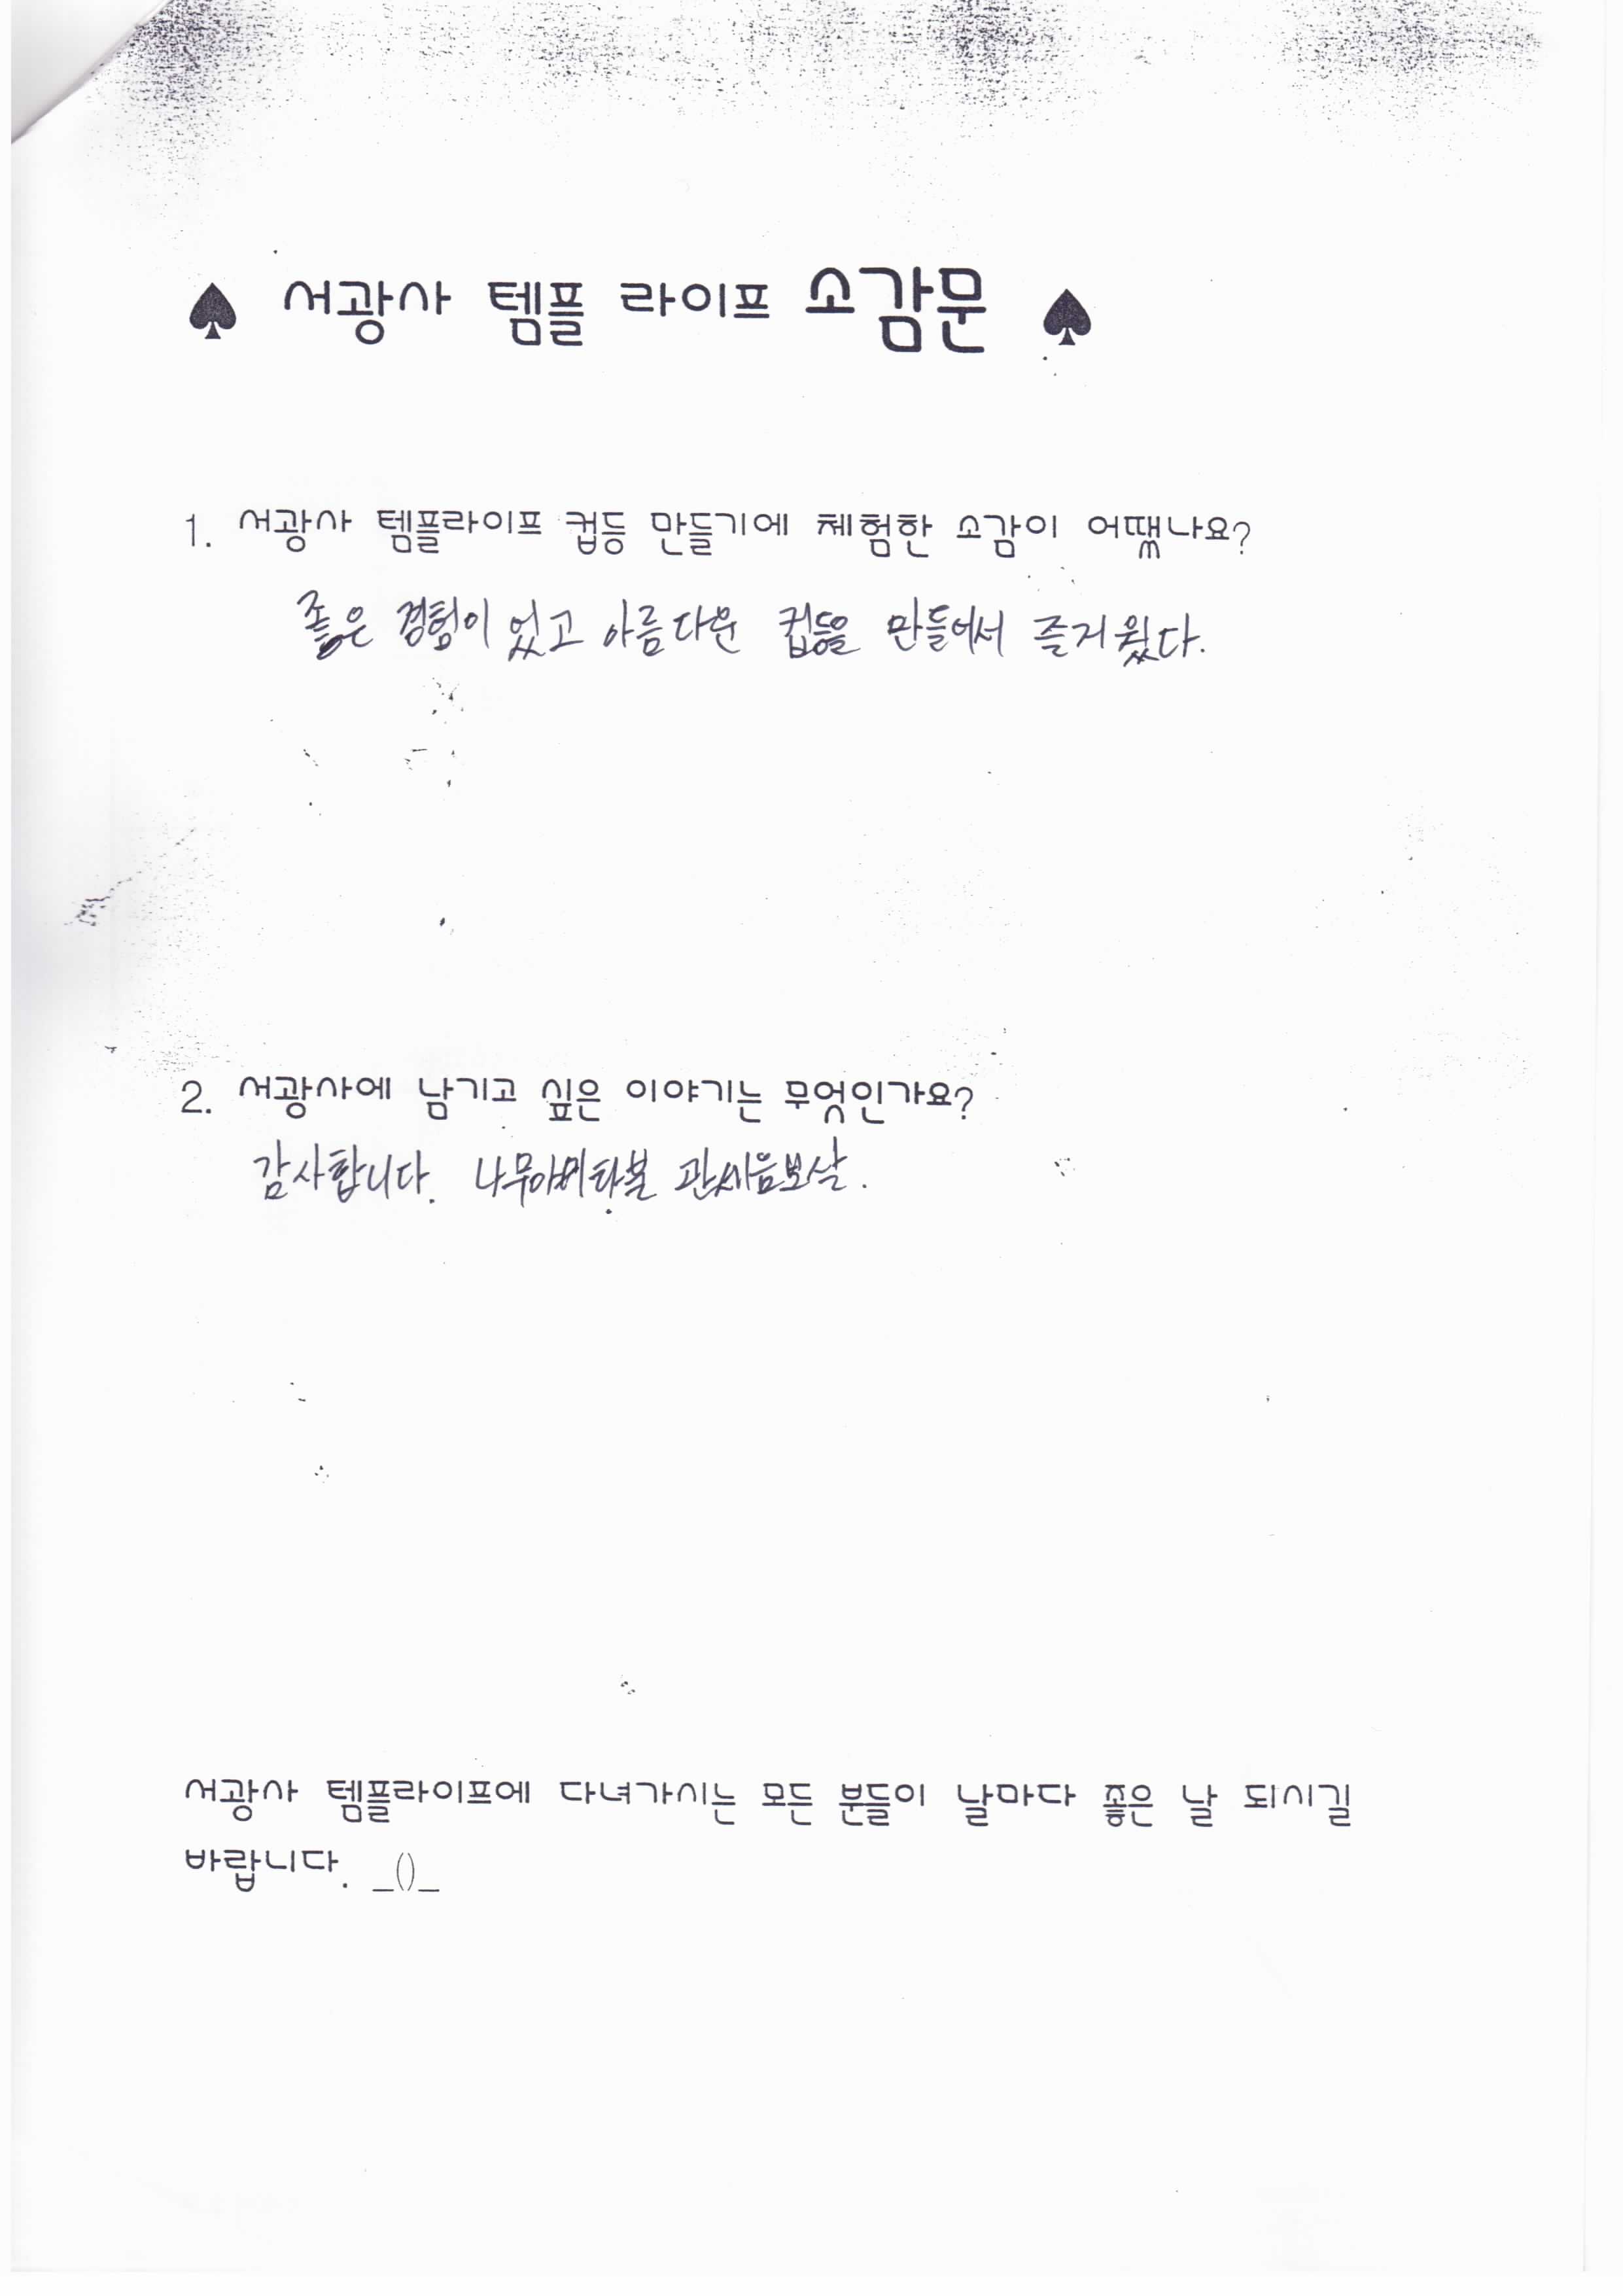 ♠ 서광사 템플 라이프 소감문 ♠
1. 서광사 템플라이프 컵등 만들기에 체험한 소감이 어땠나요?
좋은 경험이 었고 아름다운 컵등을 만들어서 즐거웠다.
2. 서광사에 남기고 싶은 이야기는 무엇인가요?
감사합니다. 나무아미타불 관세음보살.
서광사 템플라이프에 다녀가시는 모든 분들이 날마다 좋은 날 되시길
바랍니다. _()_